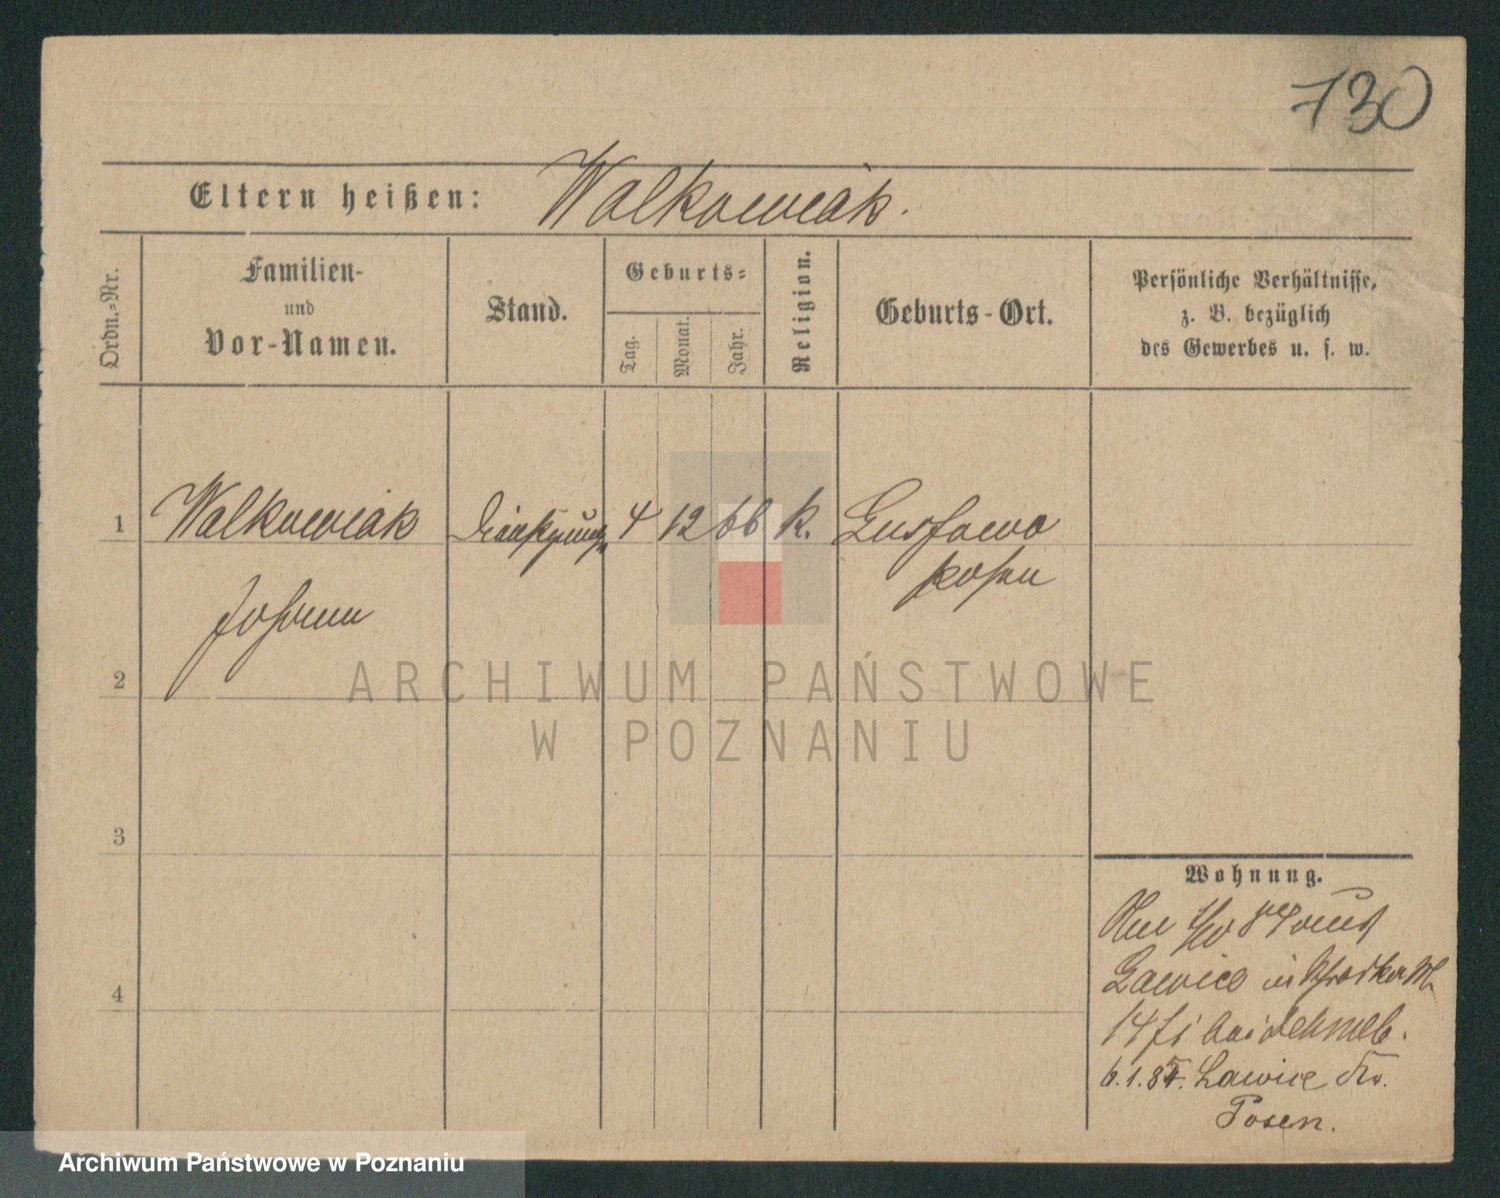 730
Eltern heißen: Walkowiak.
Ordn.-Nr.
Familien-
und
Vor-Namen.
Stand.
Geburts-
Tag.
Monat.
Jahr.
Religion.
Geburts-Ort.
Persönliche Verhältnisse,
z. B. bezüglich
des Gewerbes u. s. w.
1 Walkowiak 4 12 66 k.
Posen
Johann
2
ARCHIWUM PAŃSTWOWE
W POZNANIU
3
Wohnung.
4
Lawica in
14 bei
6.1.87. Lawice Krs.
Posen.
Archiwum Państwowe w Poznaniu